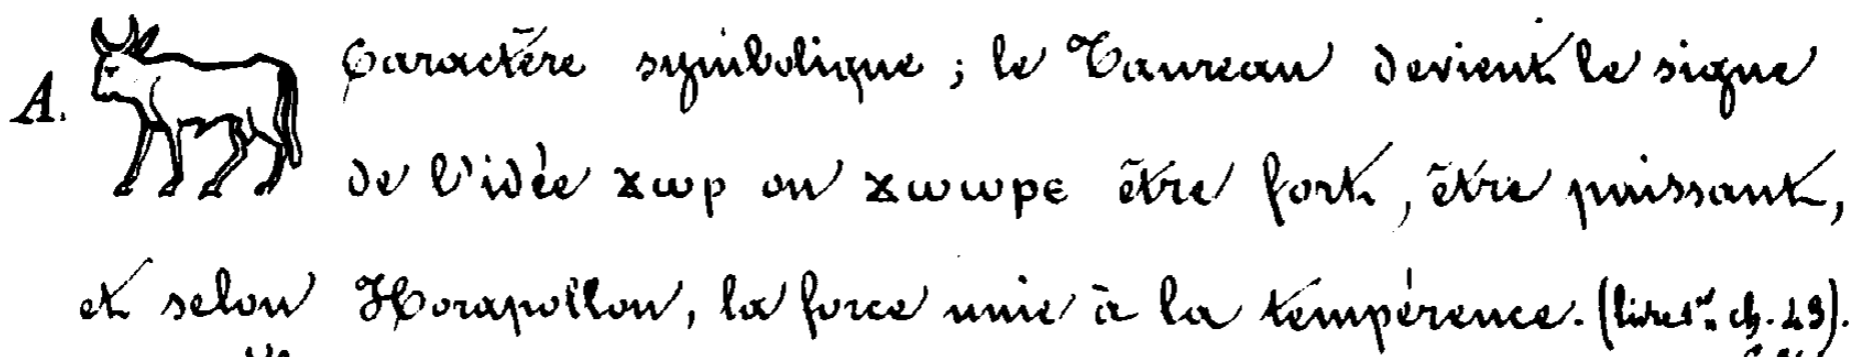 A. Caractère symbolique ; le Taureau devient le signe
de l'idée ϫⲱⲣ ou ϫⲱⲱⲣⲉ être fort, être puissant,
et selon Horapollon, la force unie à la tempérence. (livre 1er ch. 43).